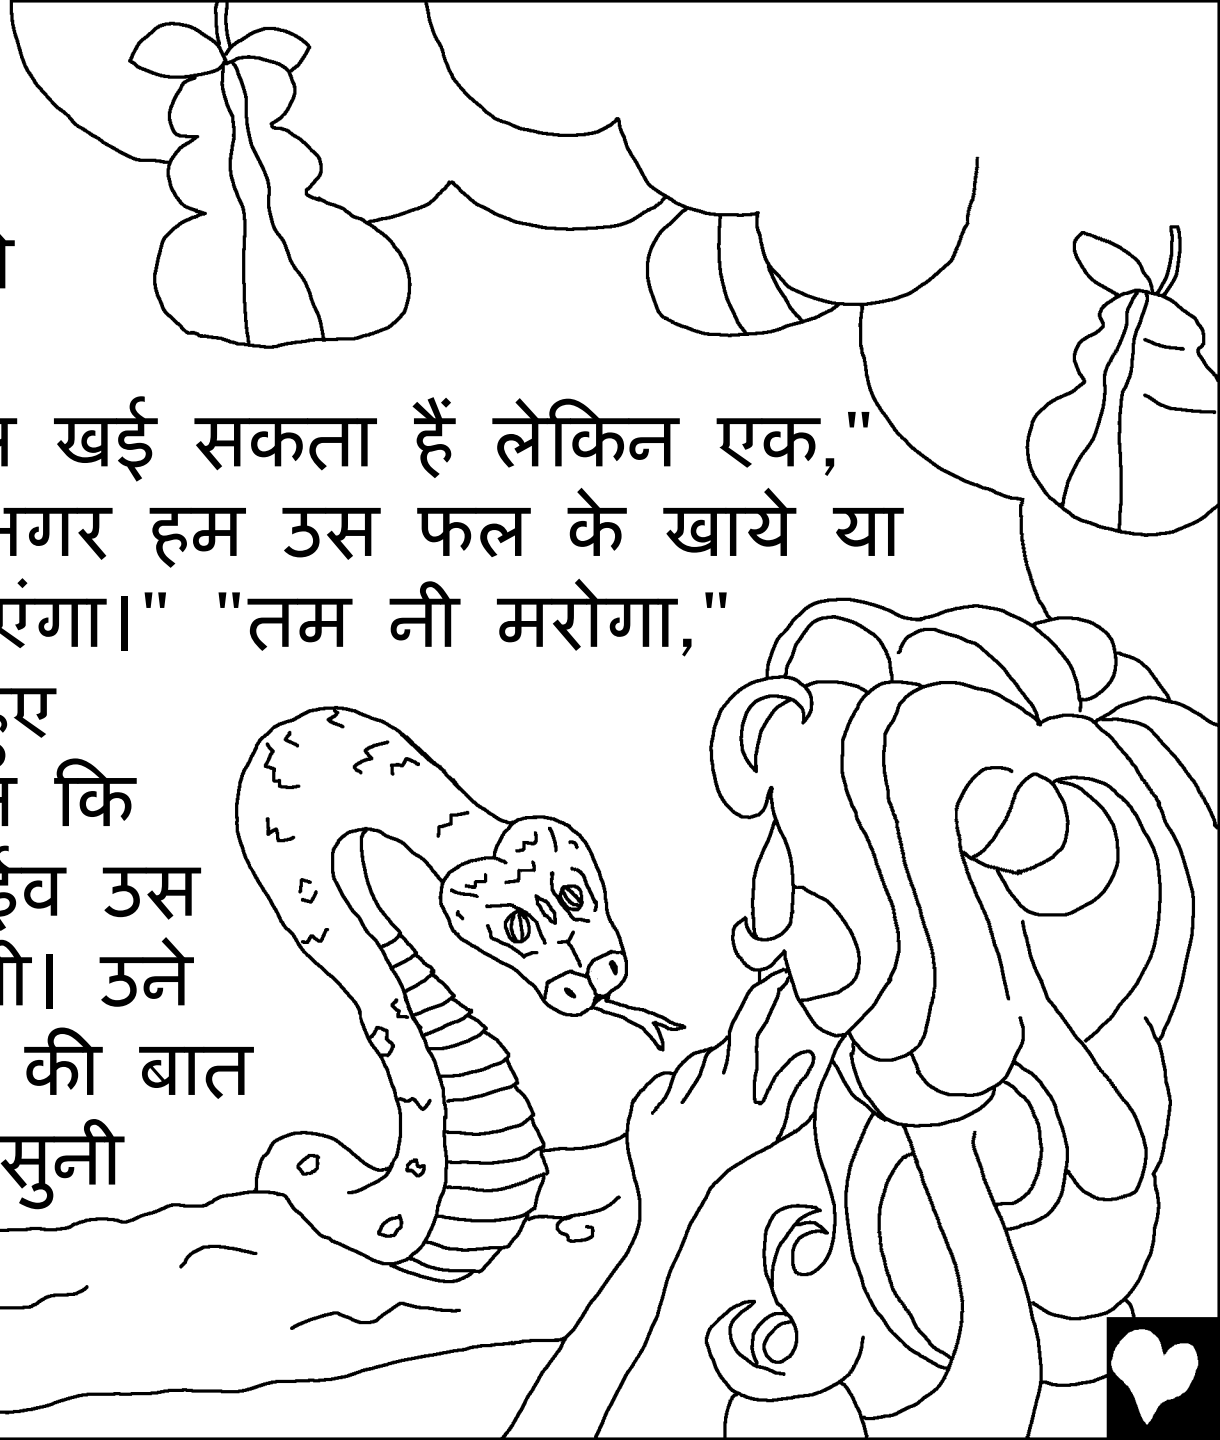 खई सकता हैं लेकिन एक,"
अगर हम उस फल के खाये या
एंगा।" "तम नी मरोगा,"
हुए
कि
ईव उस
उने
की बात
सुनी